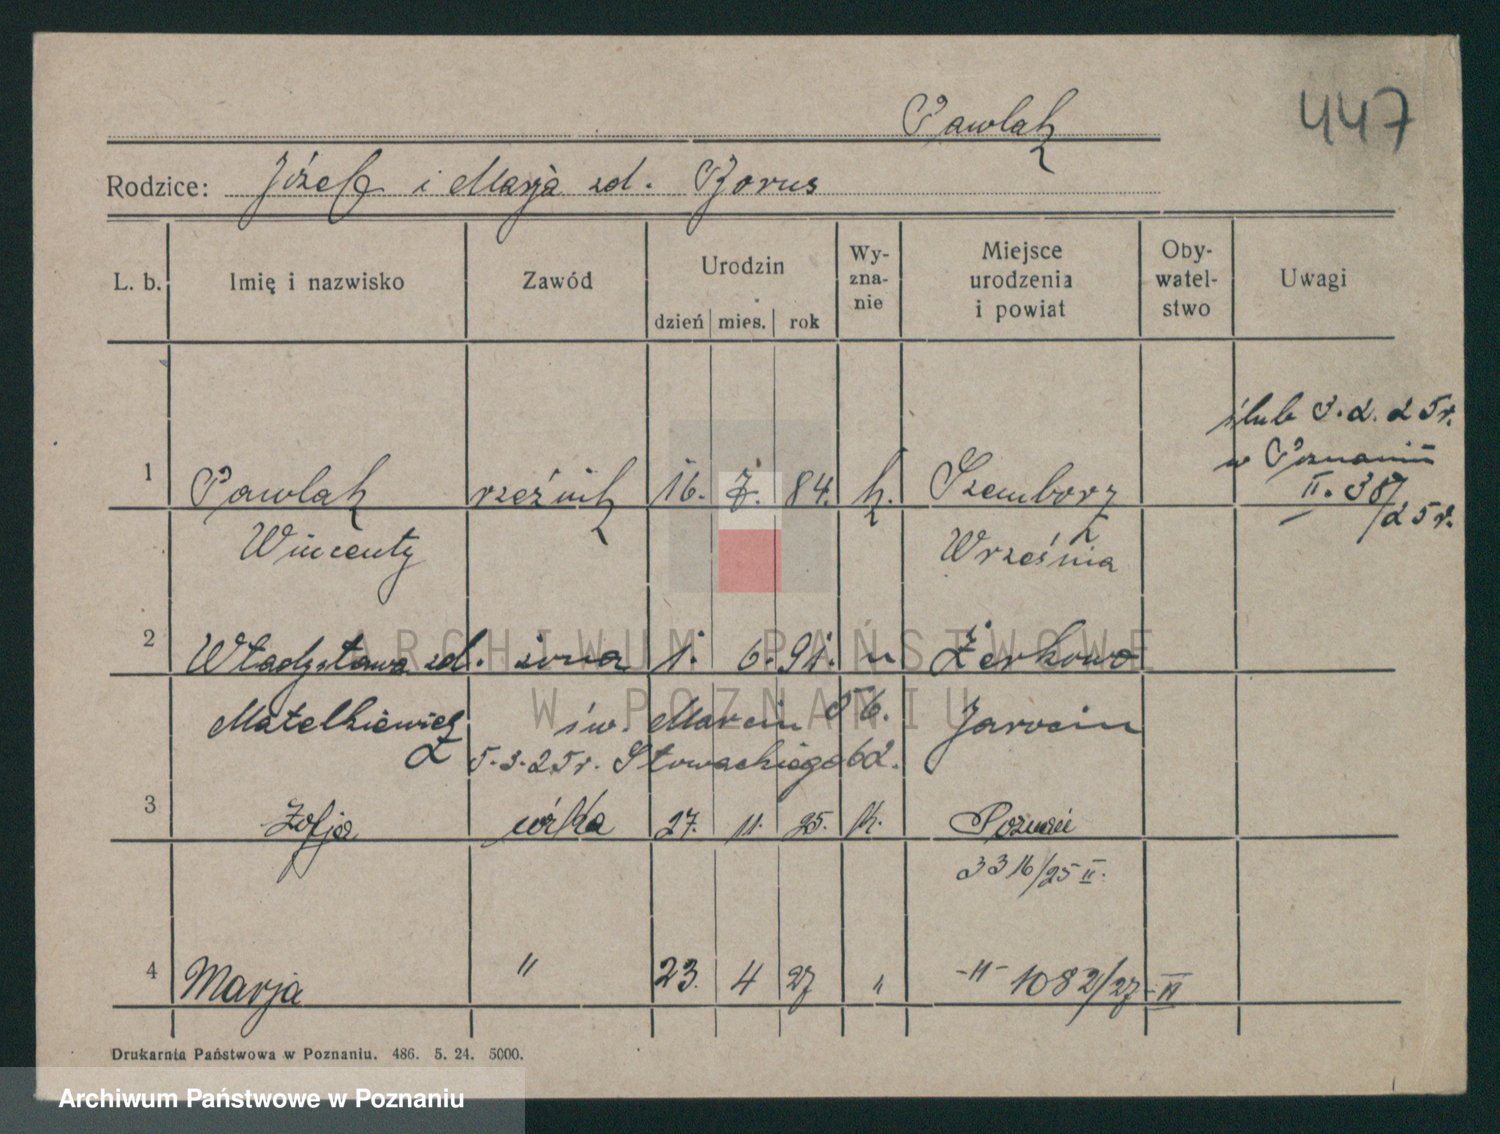 447
Pawlak
Rodzice: Józef i Marja zd. Borus
L. b. Imię i nazwisko Zawód Urodzin dzień mies. rok Wy-zna-nie Miejsce urodzenia i powiat Oby-watel-stwo Uwagi
ślub 3.2.25r.
w Poznaniu
II. 387
/25r.
1 Pawlak rzeźnik 16. 7. 84. k. Szemborz
Wincenty Września
2 Władysława zd. żona 1. 6. 91. " Żerkowo
Matelkiewicz św. Marcin 56. Jarocin
5.3.25r. Słowackiego 62.
3 Zofja córka 27. 11. 25. k. Poznań
3316/25 II.
4 Marja " 23. 4 27 " -"- 1082/27-II
Drukarnia Państwowa w Poznaniu. 486. 5. 24. 5000.
ARCHIWUM PAŃSTWOWE
W POZNANIU
Archiwum Państwowe w Poznaniu